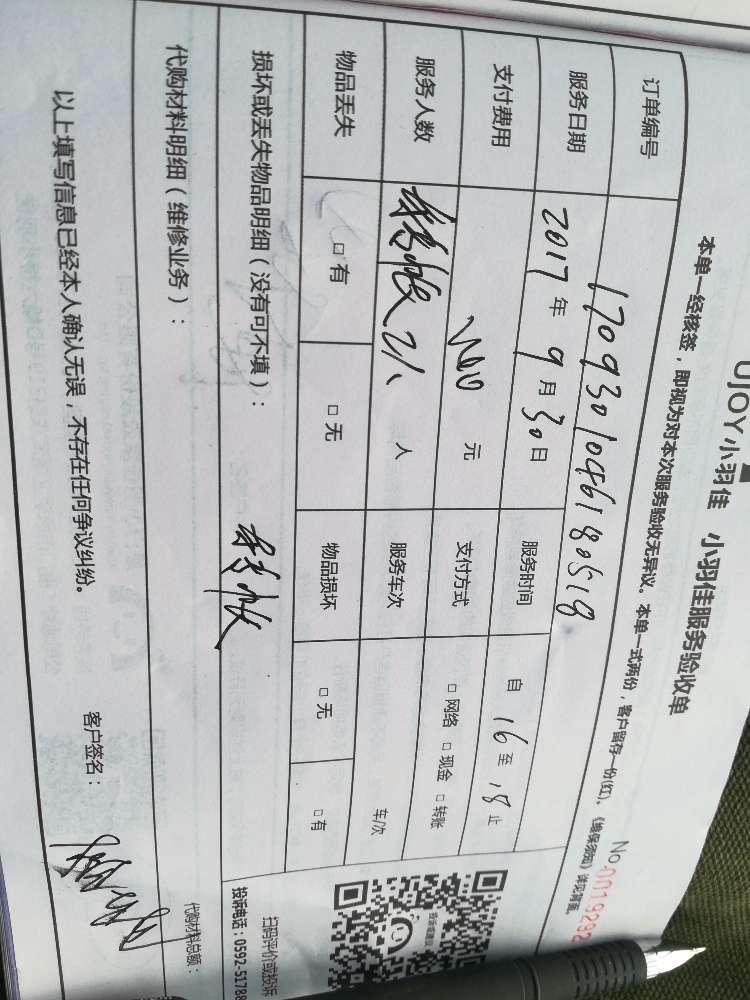 UJOY小羽佳 小羽佳服务验收单
No.0019292
本单一经核签，即视为对本次服务验收无异议。本单一式两份，客户留存一份(红)。《维保须知》详见背面。
订单编号 170930104618051
服务日期 2017年9月30日 服务时间 自16至18止
支付费用 元 支付方式 □网络 □现金 □转账
服务人数 2人 人 服务车次 车/次
物品丢失 □有 □无 物品损坏 □无 □有
损坏或丢失物品明细（没有可不填）：
扫码评价或投诉
投诉电话：0592-51788
代购材料明细（维修业务）：
代购材料总额：
以上填写信息已经本人确认无误，不存在任何争议纠纷。
客户签名：